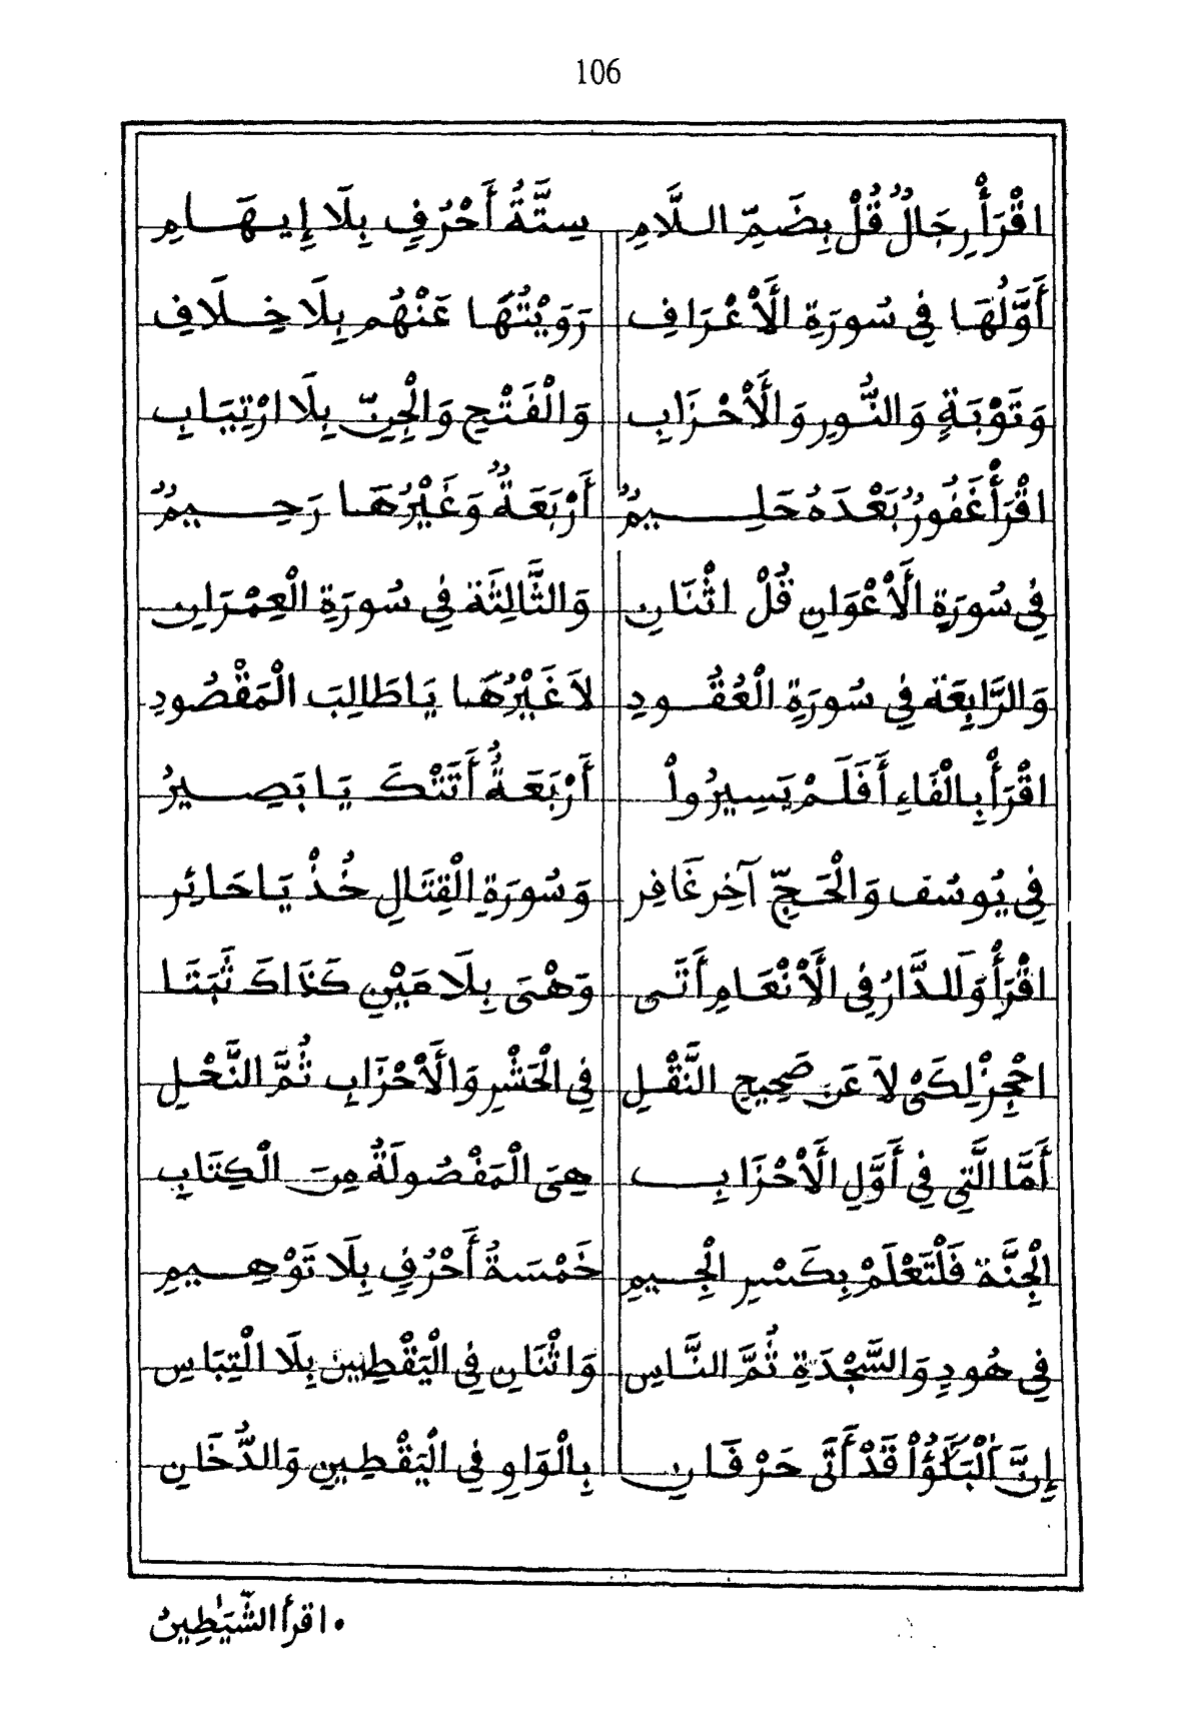 106
اقْرَأْ رِجَالٌ قُلْ بِضَمِّ اللَّامِ سِتَّةُ أَحْرُفٍ بِلَا إِيهَامِ
أَوَّلُهَا فِي سُورَةِ الْأَعْرَافِ رَوَيْتُهَا عَنْهُم بِلَا خِلَافِ
وَتَوْبَةٍ وَالنُّورِ وَالْأَحْزَابِ وَالْفَتْحِ وَالْجِنِّ بِلَا ارْتِيَابِ
اقْرَأْ غَفُورٌ بَعْدَهُ حَلِيمٌ أَرْبَعَةٌ وَغَيْرُهَا رَحِيمٌ
فِي سُورَةِ الْأَعْوَانِ قُلْ اثْنَانِ وَالثَّالِثَةُ فِي سُورَةِ الْعِمْرَانِ
وَالرَّابِعَةُ فِي سُورَةِ الْعُقُودِ لَا غَيْرُهَا يَا طَالِبَ الْمَقْصُودِ
اقْرَأْ بِالْفَاءِ أَفَلَمْ يَسِيرُواْ أَرْبَعَةٌ أَتَتْكَ يَا بَصِيرُ
فِي يُوسُفَ وَالْحَجِّ آخِرِ غَافِرِ وَسُورَةِ الْقِتَالِ خُذْ يَا حَائِرِ
اقْرَأْ وَلَلدَّارُ فِي الْأَنْعَامِ أَتَى وَهْيَ بِلَا مَيْنٍ كَذَاكَ ثَبَتَا
احْجِزْ لِكَيْ لَا عَن صَحِيحِ النَّقْلِ فِي الْحَشْرِ وَالْأَحْزَابِ ثُمَّ النَّحْلِ
أَمَّا الَّتِي فِي أَوَّلِ الْأَحْزَابِ هِيَ الْمَفْصُولَةُ مِنَ الْكِتَابِ
الْجِنَّةِ فَلْتَعْلَمْ بِكَسْرِ الْجِيمِ خَمْسَةُ أَحْرُفٍ بِلَا تَوْهِيمِ
فِي هُودٍ وَالسَّجْدَةِ ثُمَّ النَّاسِ وَاثْنَانِ فِي الْيَقْطِينِ بِلَا الْتِبَاسِ
إِنَّ الْبَلَٰٓؤُاْ قَدْ أَتَى حَرْفَانِ بِالْوَاوِ فِي الْيَقْطِينِ وَالدُّخَانِ
• اقرأ الشَّيَٰطِينُ